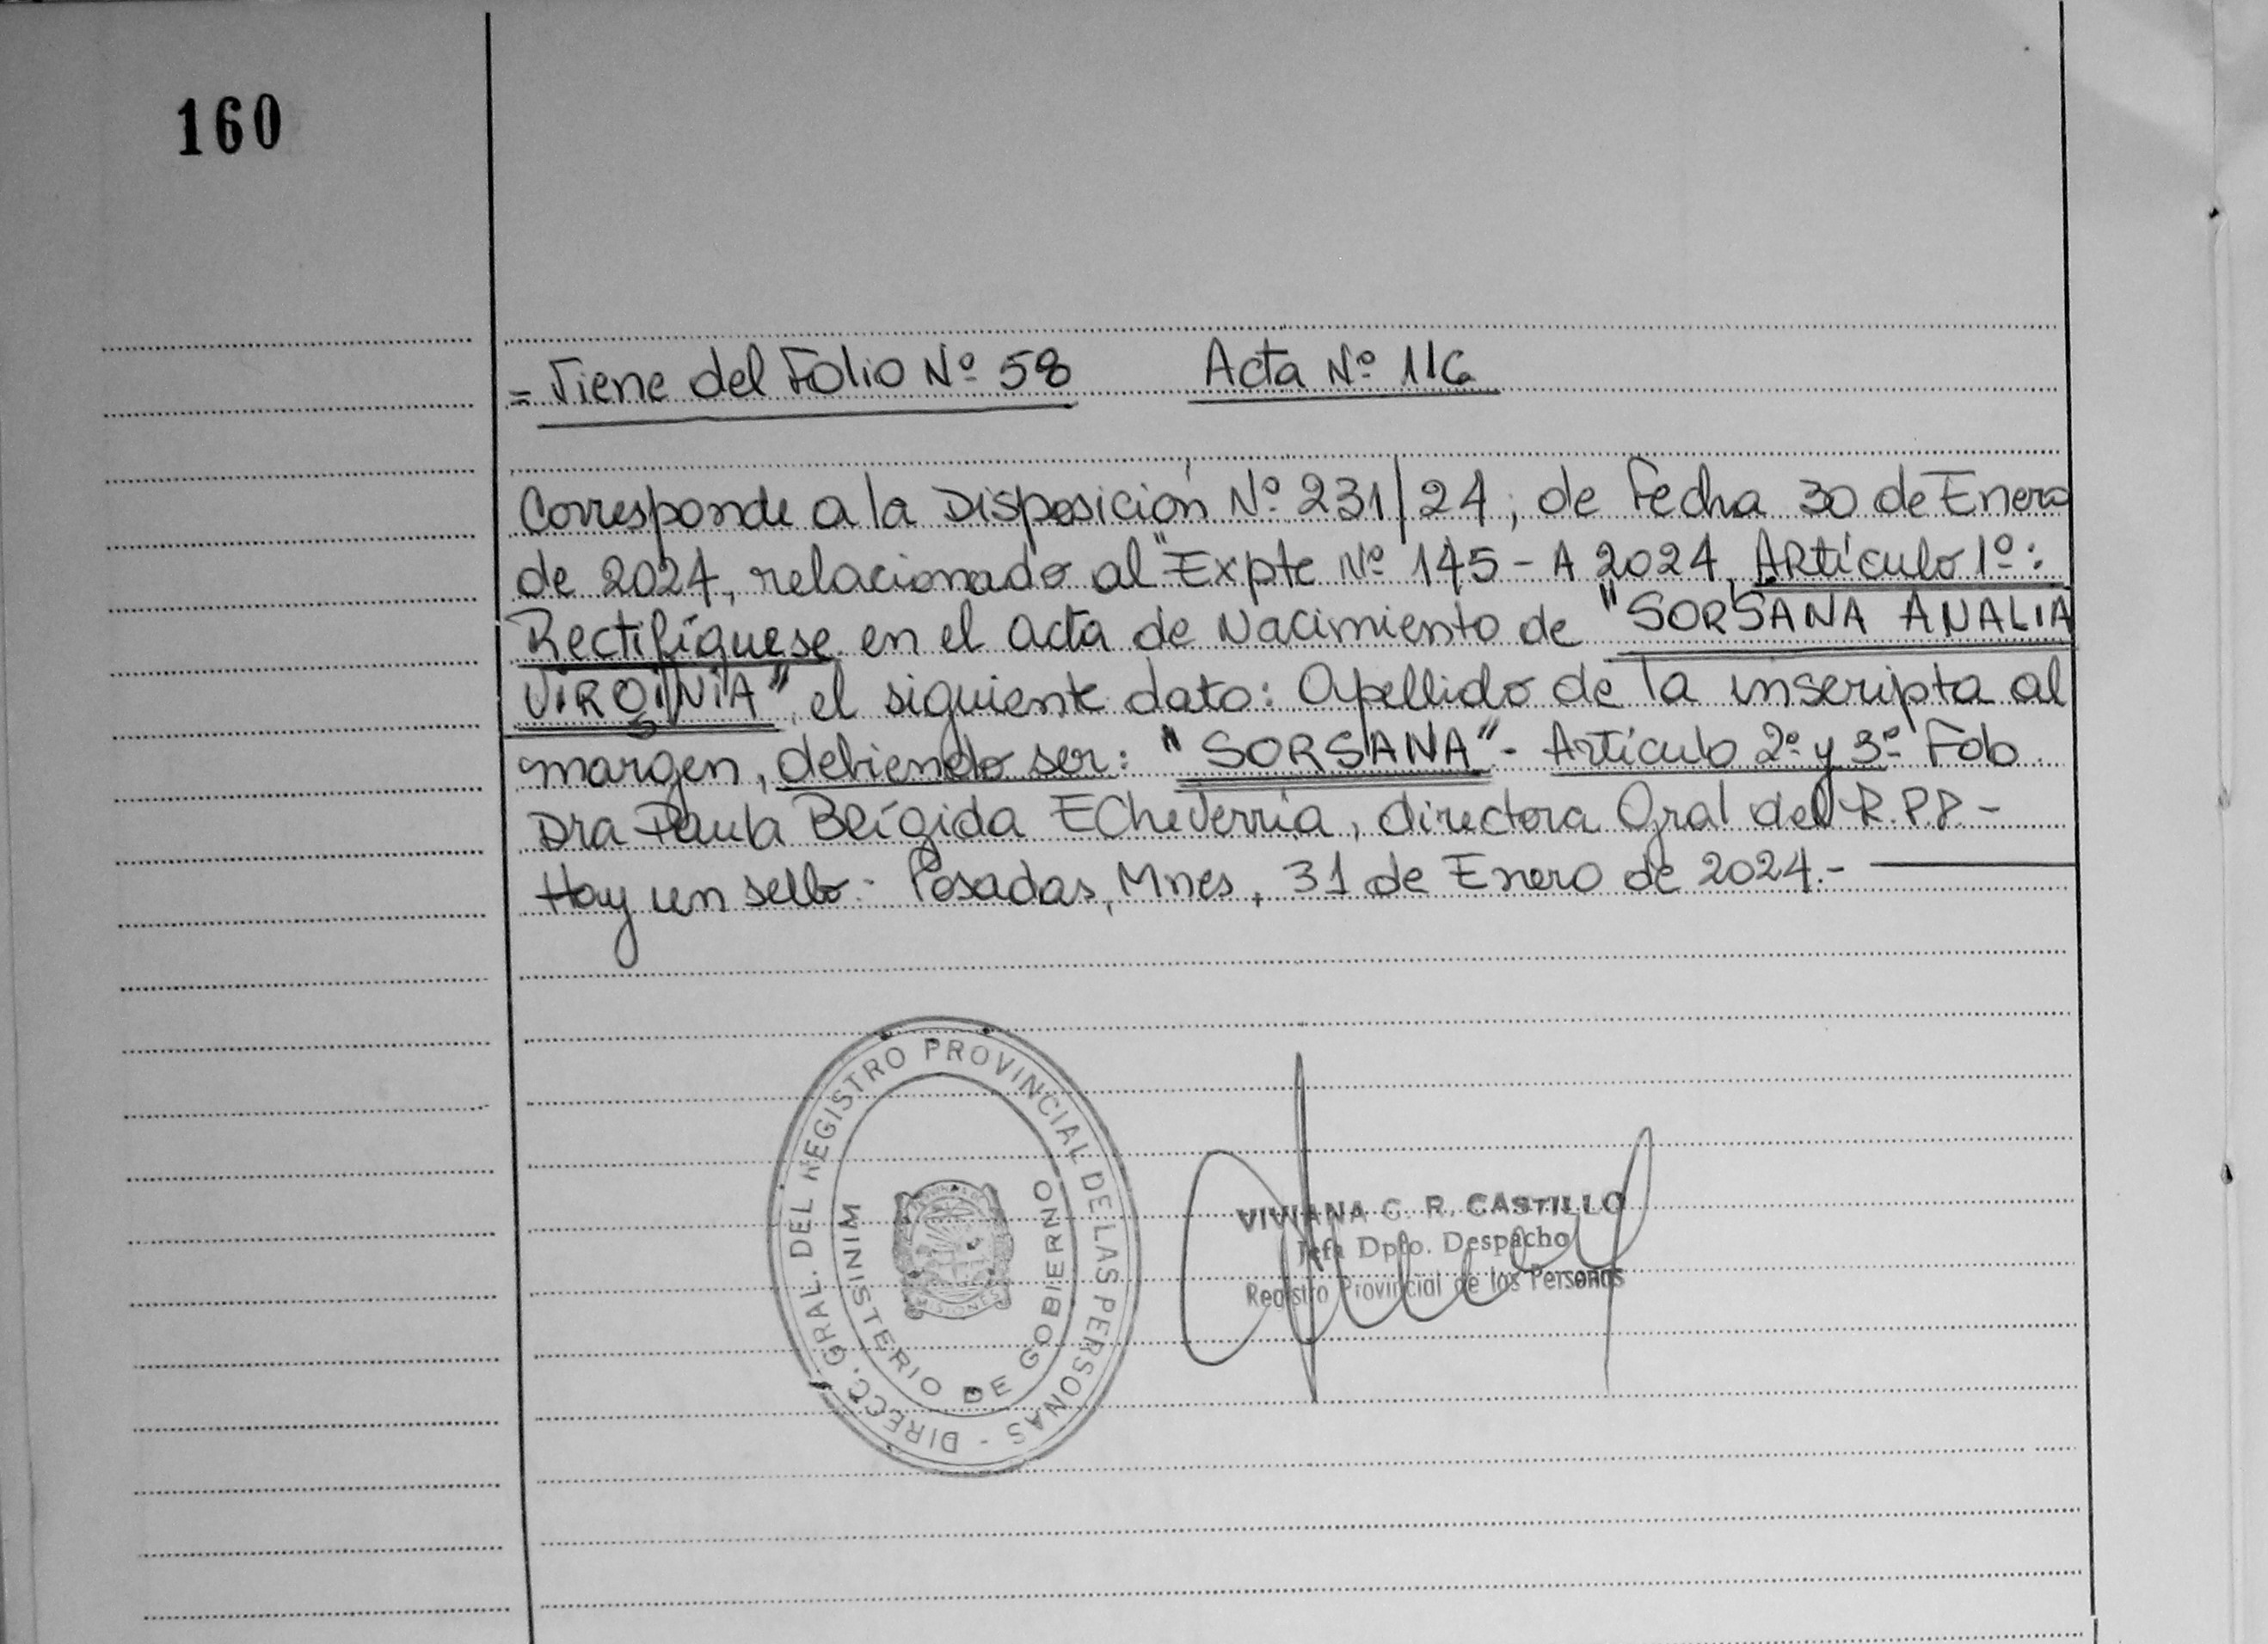 160
= Viene del Folio Nº 58 Acta Nº 116
Corresponde a la Disposición Nº 231/24, de Fecha 30 de Enero
de 2024, relacionado al "Expte Nº 145-A 2024, Artículo 1º:
Rectifíquese en el acta de Nacimiento de "SORSANA ANALIA
VIRGINIA" el siguiente dato: Apellido de la inscripta al
margen, debiendo ser: "SORSANA"- Artículo 2º y 3º Fdo.
Dra Paula Brígida Echeverria, directora Gral del R.P.P-
Hay un sello.- Posadas, Mnes, 31 de Enero de 2024.-
DIRECC. GRAL. DEL REGISTRO PROVINCIAL DE LAS PERSONAS -
MINISTERIO DE GOBIERNO
MISIONES
VIVIANA C. R. CASTILLO
Jefa Dpto. Despacho
Registro Provincial de las Personas